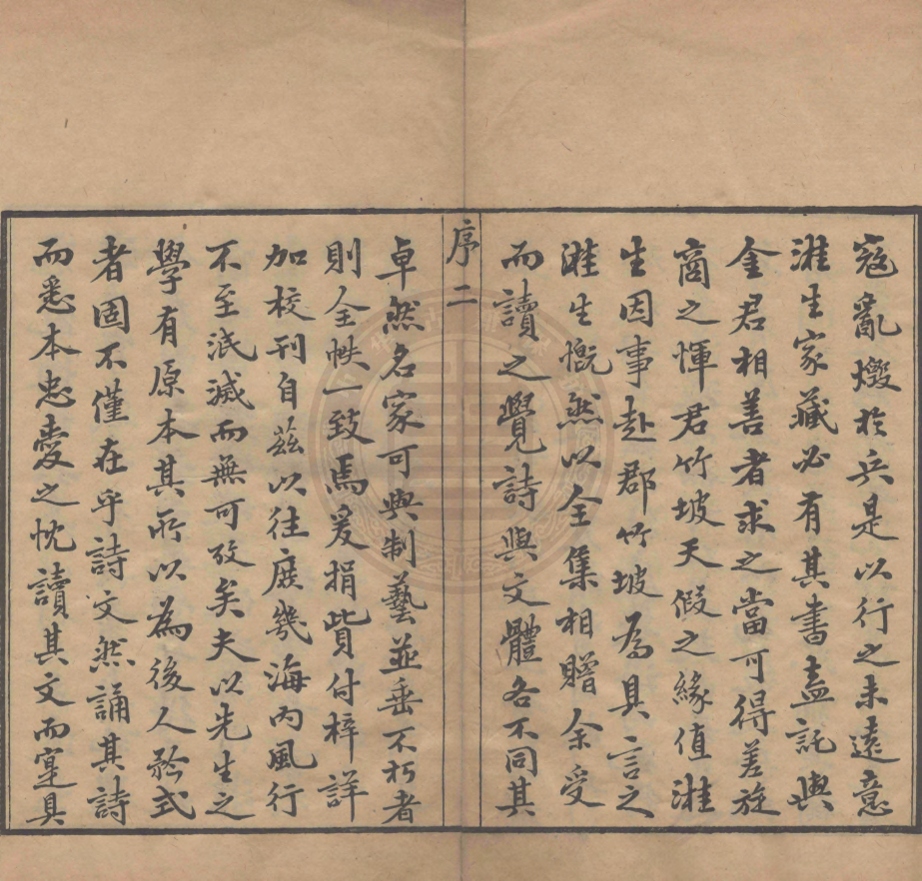 寇亂燬於兵是以行之未遠意
淮生家藏必有其書盍託與
金君相善者求之當可得差旋
商之惲君竹坡天假之緣值淮
生因事赴郡竹坡為具言之
淮生慨然以全集相贈余受
而讀之覺詩與文體各不同其
序二
卓然名家可與制藝並垂不朽者
則全帙一致焉爰捐貲付梓詳
加校刊自茲以往庶幾海內風行
不至泯滅而無可攷矣夫以先生之
學有原本其所以為後人矜式
者固不僅在乎詩文然誦其詩
而悉本忠愛之忱讀其文而寔具